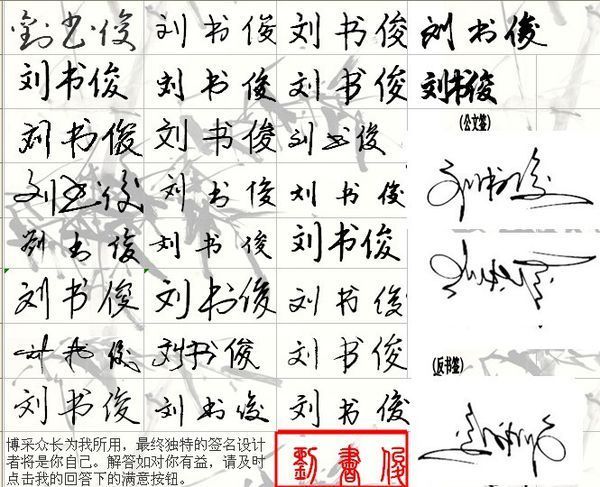 劉书俊 刘书俊 刘书俊 刘书俊
刘书俊 刘书俊 刘书俊 刘书俊
刘书俊 刘书俊 刘书俊
(公文签)
刘书俊 刘书俊 刘书俊
刘书俊 刘书俊 刘书俊
刘书俊 刘书俊 刘书俊
刘书俊 刘书俊 刘书俊
(反书签)
刘书俊 刘书俊 刘书俊
博采众长为我所用，最终独特的签名设计
者将是你自己。解答如对你有益，请及时
点击我的回答下的满意按钮。
劉書俊